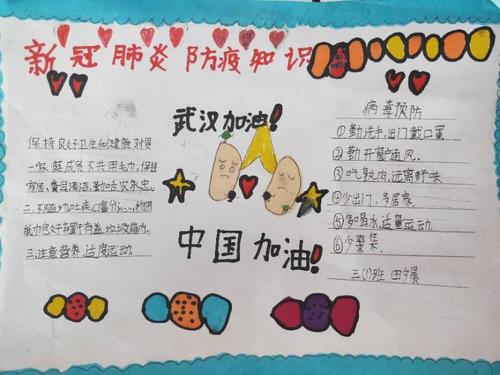 新冠肺炎防疫知识
武汉加油!
保持良好卫生和健康习惯
一、家庭成员不共用毛巾,保持
家居、餐具清洁,勤
二、不随地吐痰,口鼻分
纸巾包好弃置于有盖垃圾箱内。
三、注意营养,适度运动
中国加油!
病毒预防
①勤洗手,出门戴口罩
②勤开窗通风。
③吃熟肉,远离野味
④少出门,多居家
⑤多喝水,适量运动
⑥少聚集。
三(1)班